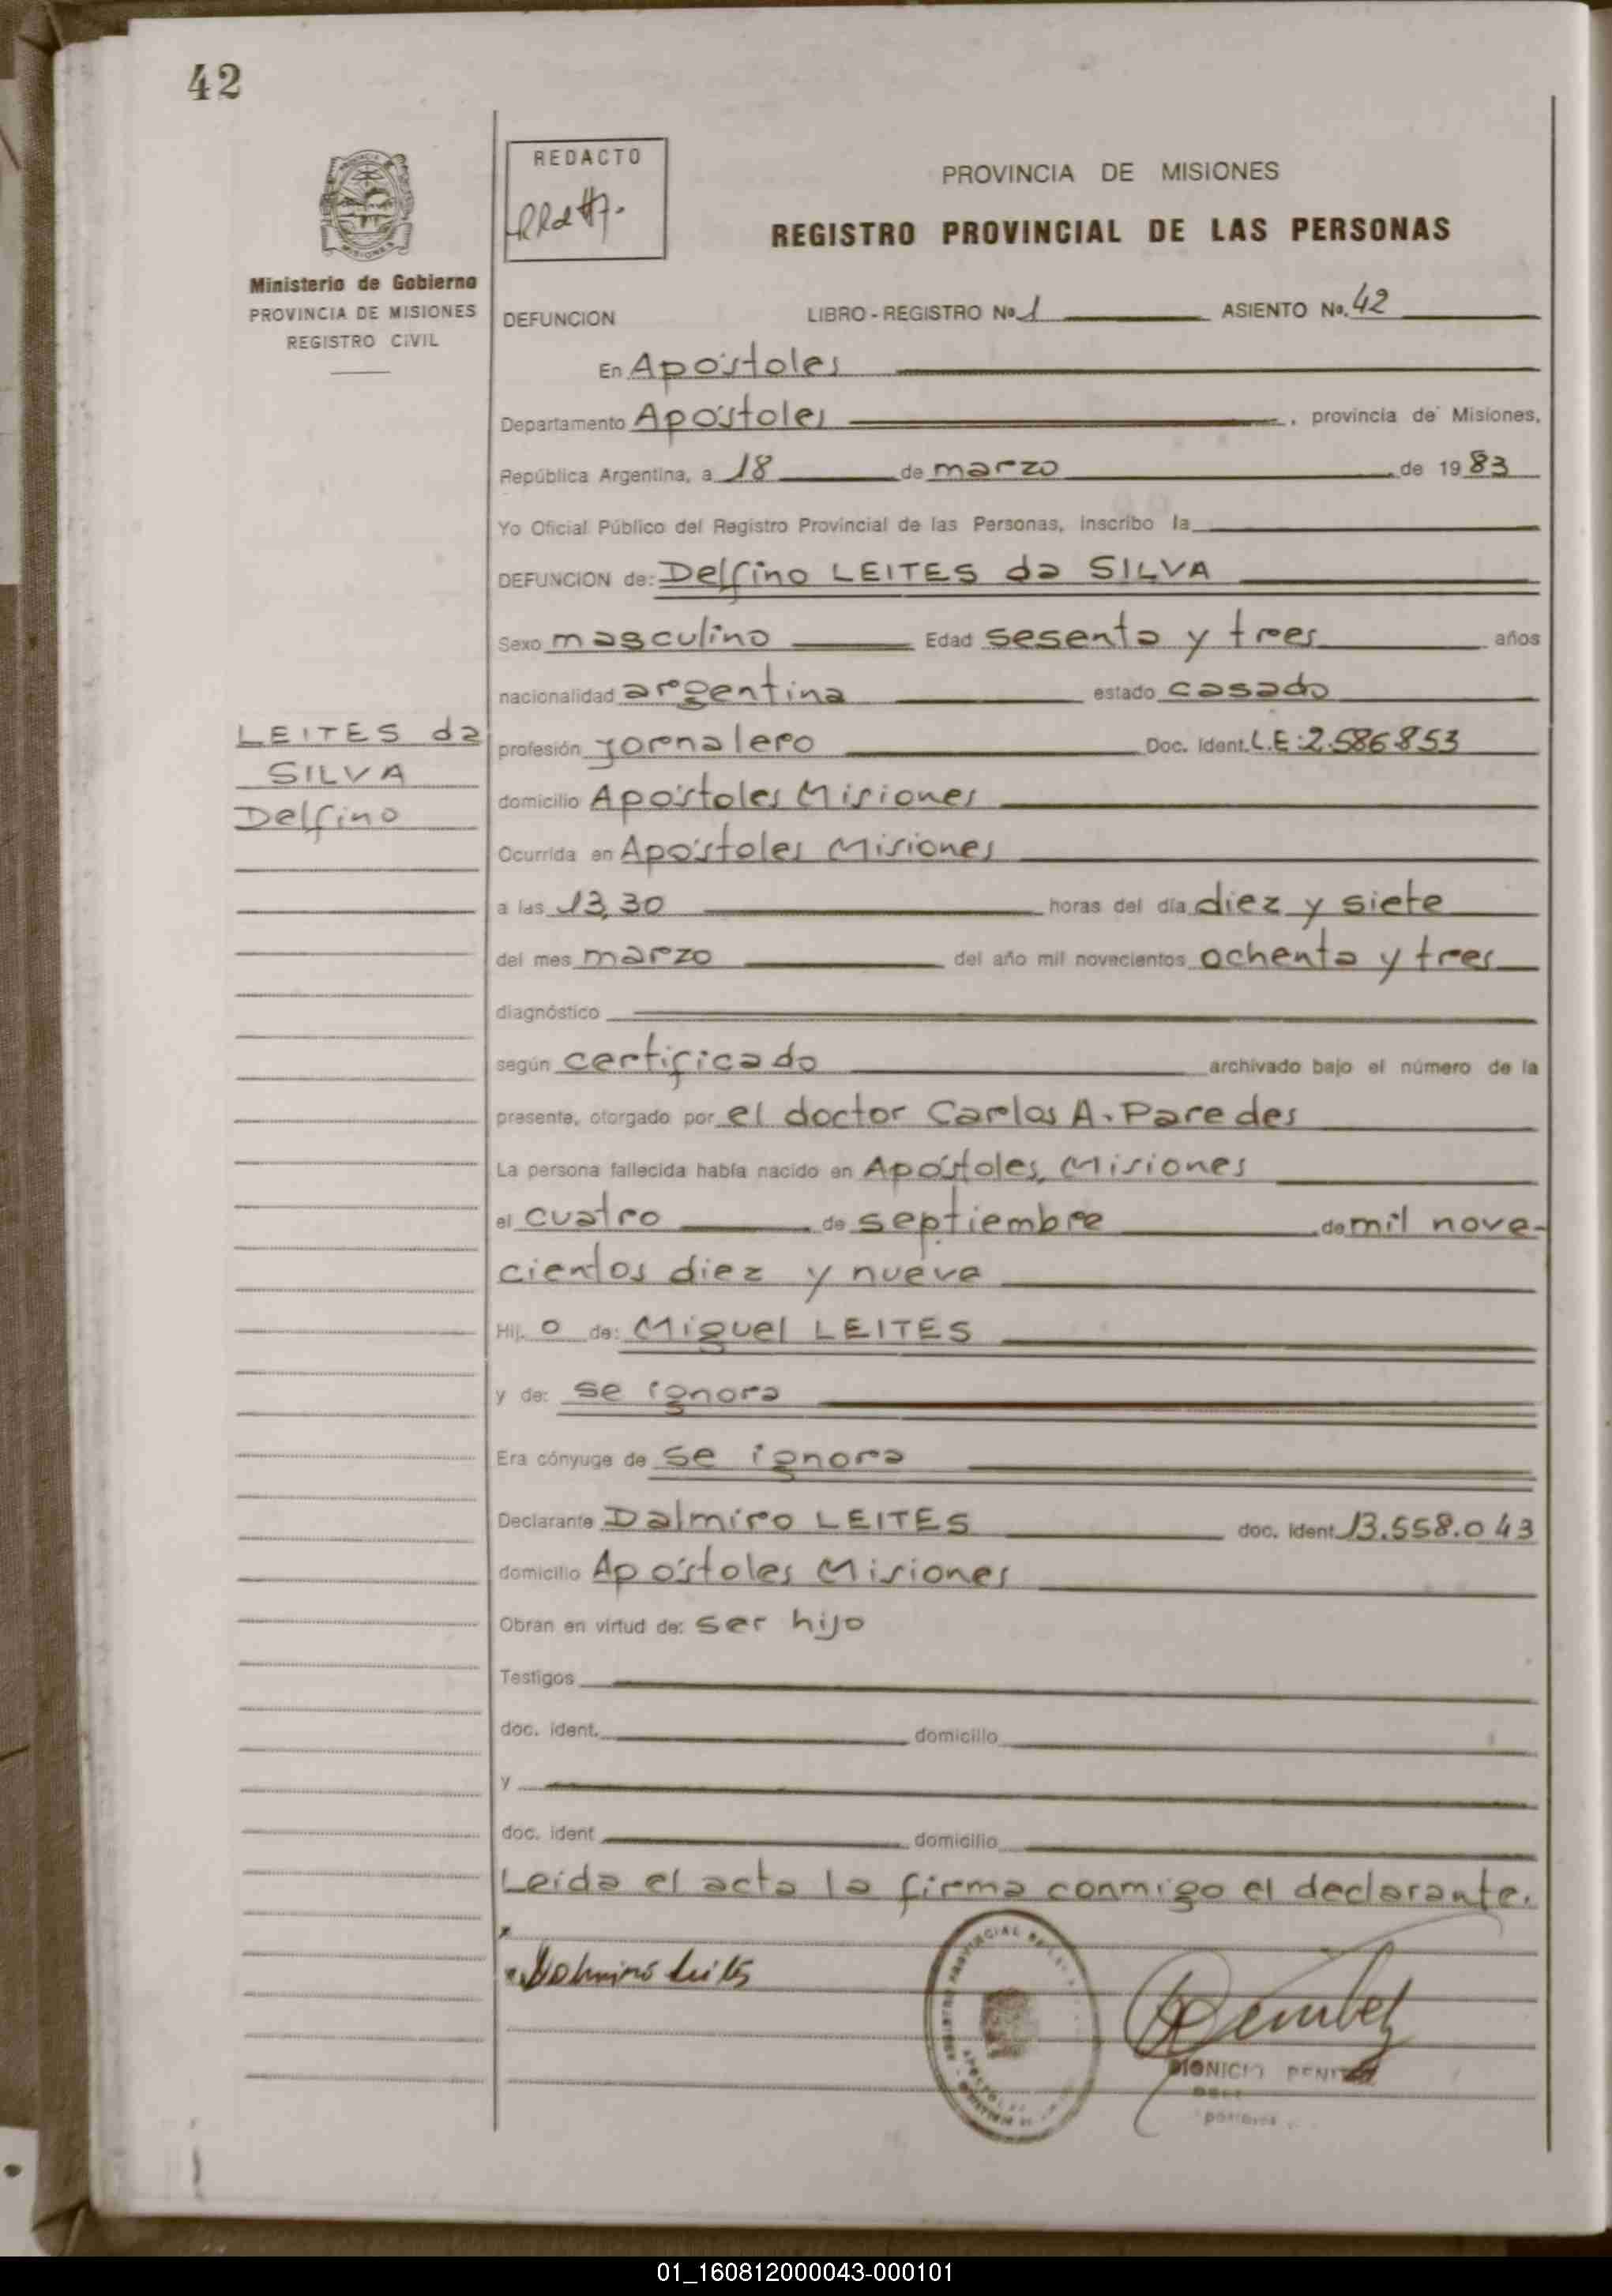 42
REDACTO
PROVINCIA DE MISIONES
REGISTRO PROVINCIAL DE LAS PERSONAS
Ministerio de Gobierno
PROVINCIA DE MISIONES
REGISTRO CIVIL
DEFUNCION LIBRO - REGISTRO Nº 1 ASIENTO Nº. 42
En Apóstoles
Departamento Apóstoles , provincia de Misiones,
República Argentina, a 18 de marzo de 1983
Yo Oficial Público del Registro Provincial de las Personas, inscribo la
DEFUNCION de: Delfino LEITES da SILVA
Sexo masculino Edad sesenta y tres años
nacionalidad argentina estado casado
LEITES da
SILVA
Delfino
profesión jornalero Doc. Ident. L.E:2.586.853
domicilio Apóstoles Misiones
Ocurrida en Apóstoles Misiones
a las 13,30 horas del día diez y siete
del mes marzo del año mil novecientos ochenta y tres
diagnóstico
según certificado archivado bajo el número de la
presente, otorgado por el doctor Carlos A. Paredes
La persona fallecida había nacido en Apóstoles, Misiones
el cuatro de septiembre de mil nove-
cientos diez y nueve
Hij o de: Miguel LEITES
y de: se ignora
Era cónyuge de se ignora
Declarante Dalmiro LEITES doc. ident. 13.558.043
domicilio Apóstoles Misiones
Obran en virtud de: ser hijo
Testigos
doc. ident. domicilio
y
doc. ident domicilio
Leída el acta la firma conmigo el declarante.
01_160812000043-000101